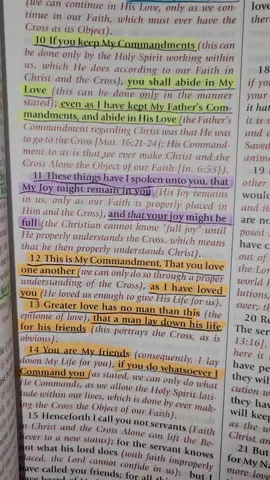 (we can continue in His Love, only as we con-
tinue in our Faith, which must ever have the
Cross as its Object).
10 If you keep My Commandments (this can
be done only by the Holy Spirit working within
us, which He does according to our Faith in
Christ and the Cross), you shall abide in My
Love (this can be done only in the manner
stated); even as I have kept My Father's Com-
mandments, and abide in His Love (the Father's
Commandment regarding Christ was that He was
to go to the Cross [Mat. 16:21-24]; His Command-
ment to us is that we ever make Christ and the
Cross Alone the Object of our Faith [Jn. 6:53]).
11 These things have I spoken unto you, that
My Joy might remain in you (His Joy remains
in us, only as our Faith is properly placed in
Him and the Cross), and that your joy might be
full (the Christian cannot know "full joy" until
He properly understands the Cross, which means
that he then properly understands Christ).
12 This is My Commandment, That you love
one another (we can only do so through a proper
understanding of the Cross), as I have loved
you (He loved us enough to give His Life for us).
13 Greater love has no man than this (the
epitome of love), that a man lay down his life
for his friends (this portrays the Cross, as is
obvious).
14 You are My friends (consequently, I lay
down My Life for you), if you do whatsoever I
Command you (as stated, we can only do what
He Commands, as we allow the Holy Spirit lati-
tude within our lives, which is done by ever mak-
ing the Cross the Object of our Faith).
15 Henceforth I call you not servants (Faith
in Christ and the Cross Alone can lift the Be-
liever to a new status); for the servant knows
not what his lord does (with faith improperly
placed, the Lord cannot confide in us); but I
have called you friends; for all
18
19
20
The ser
13:16].
21 But
for My Na